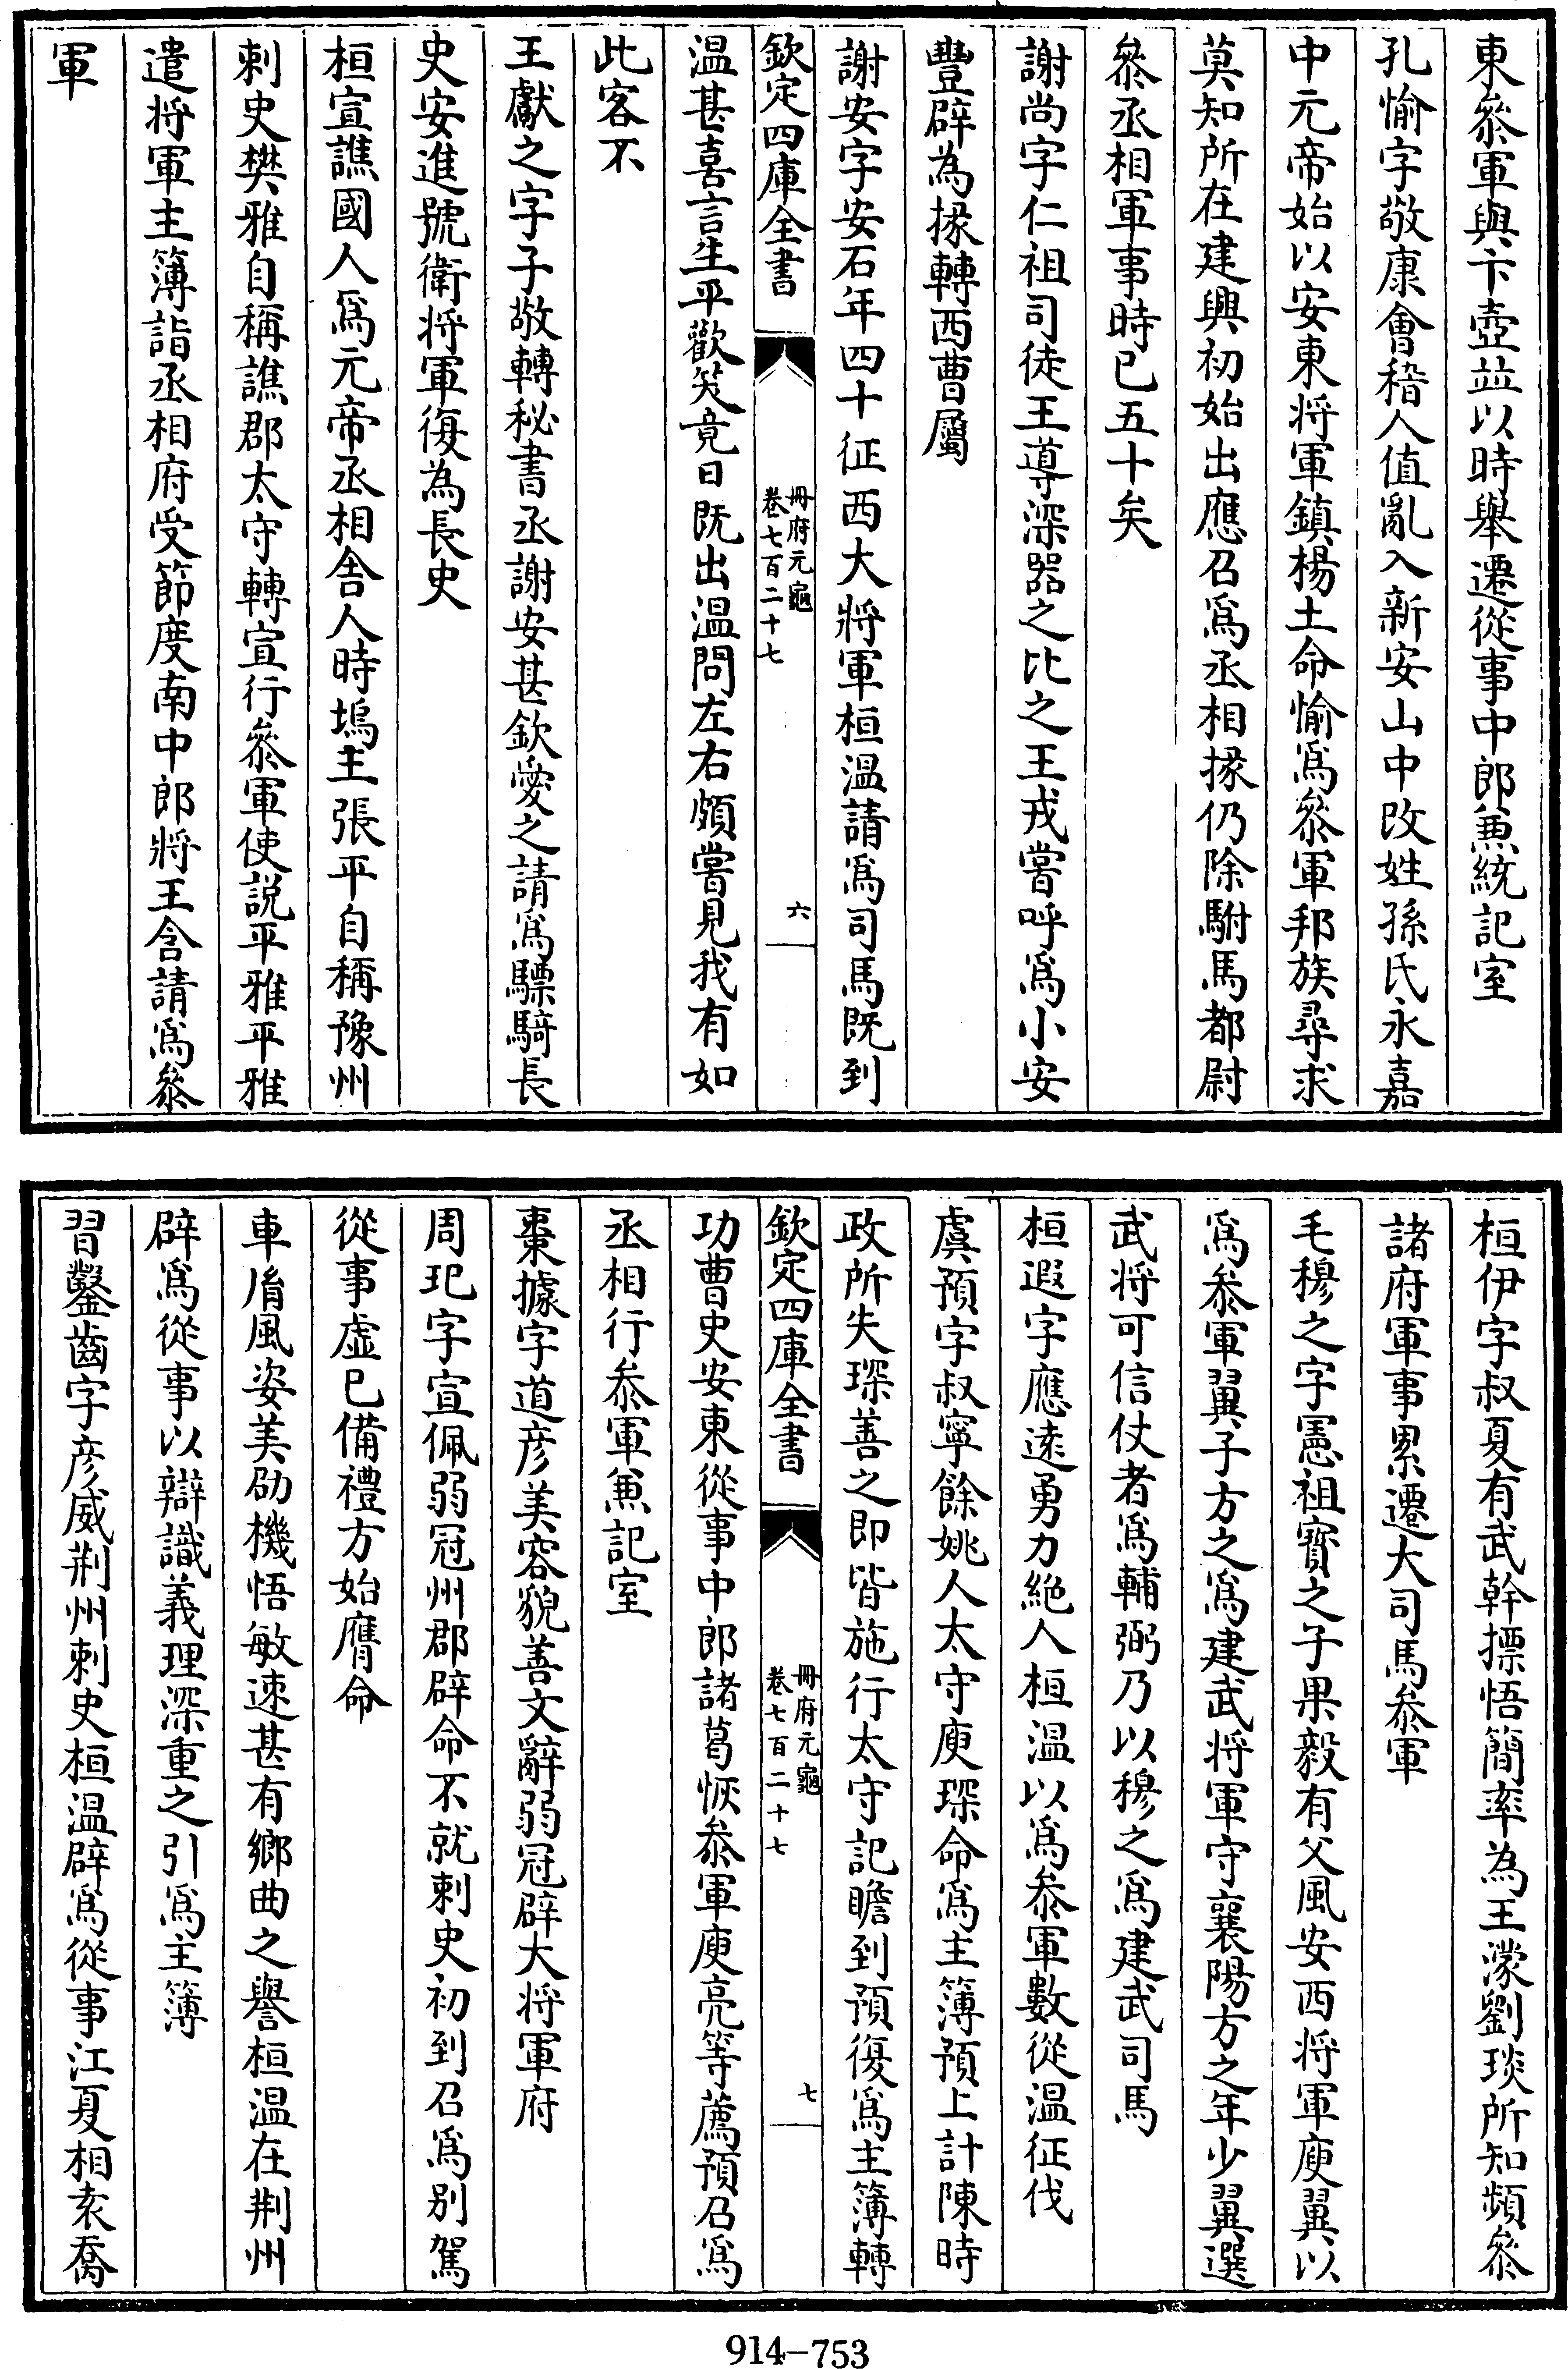 東叅軍與卞壺並以時舉遷從事中郎兼統記室
孔愉字敬康會稽人值亂入新安山中改姓孫氏永嘉
中元帝始以安東將軍鎮楊土命愉爲叅軍邦族尋求
莫知所在建興初始出應召爲丞相掾仍除駙馬都尉
叅丞相軍事時已五十矣
謝尚字仁祖司徒王導深器之比之王戎嘗呼爲小安
豐辟為掾轉西曹屬
謝安字安石年四十征西大將軍桓温請爲司馬既到
欽定四庫全書
冊府元龜
卷七百二十七
六
温甚喜言生平歡笑竟日既出温問左右頗嘗見我有如
此客不
王獻之字子敬轉秘書丞謝安甚欽愛之請爲驃騎長
史安進號衛將軍復為長史
桓宣譙國人爲元帝丞相舎人時塢主張平自稱豫州
刺史樊雅自稱譙郡太守轉宣行叅軍使説平雅平雅
遣將軍主簿詣丞相府受節度南中郎將王含請爲叅
軍
桓伊字叔夏有武幹摽悟簡率為王濛劉琰所知頻叅
諸府軍事累遷大司馬叅軍
毛穆之字憲祖寳之子果毅有父風安西將軍庾翼以
爲叅軍翼子方之爲建武將軍守襄陽方之年少翼選
武將可信仗者爲輔弼乃以穆之爲建武司馬
桓遐字應逺勇力絶人桓温以爲叅軍數從温征伐
虞預字叔寧餘姚人太守庾琛命爲主簿預上計陳時
政所失琛善之即皆施行太守記瞻到預復爲主簿轉
欽定四庫全書
冊府元龜
卷七百二十七
七
功曹史安東從事中郎諸葛恢叅軍庾亮等薦預召爲
丞相行叅軍兼記室
棗據字道彦美容貌善文辭弱冠辟大將軍府
周玘字宣佩弱冠州郡辟命不就刺史初到召爲別駕
從事虚已備禮方始膺命
車胤風姿美劭機悟敏速甚有鄉曲之譽桓温在荆州
辟爲從事以辯識義理深重之引爲主簿
習鑿齒字彦威荆州刺史桓温辟爲從事江夏相袁喬
914-753